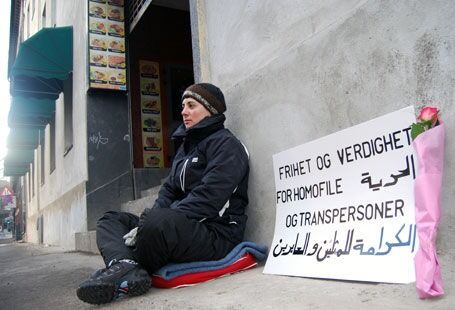 FRIHET OG VERDIGHET
FOR HOMOFILE الحرية
OG TRANSPERSONER
الكرامة للمثليين والعابرين